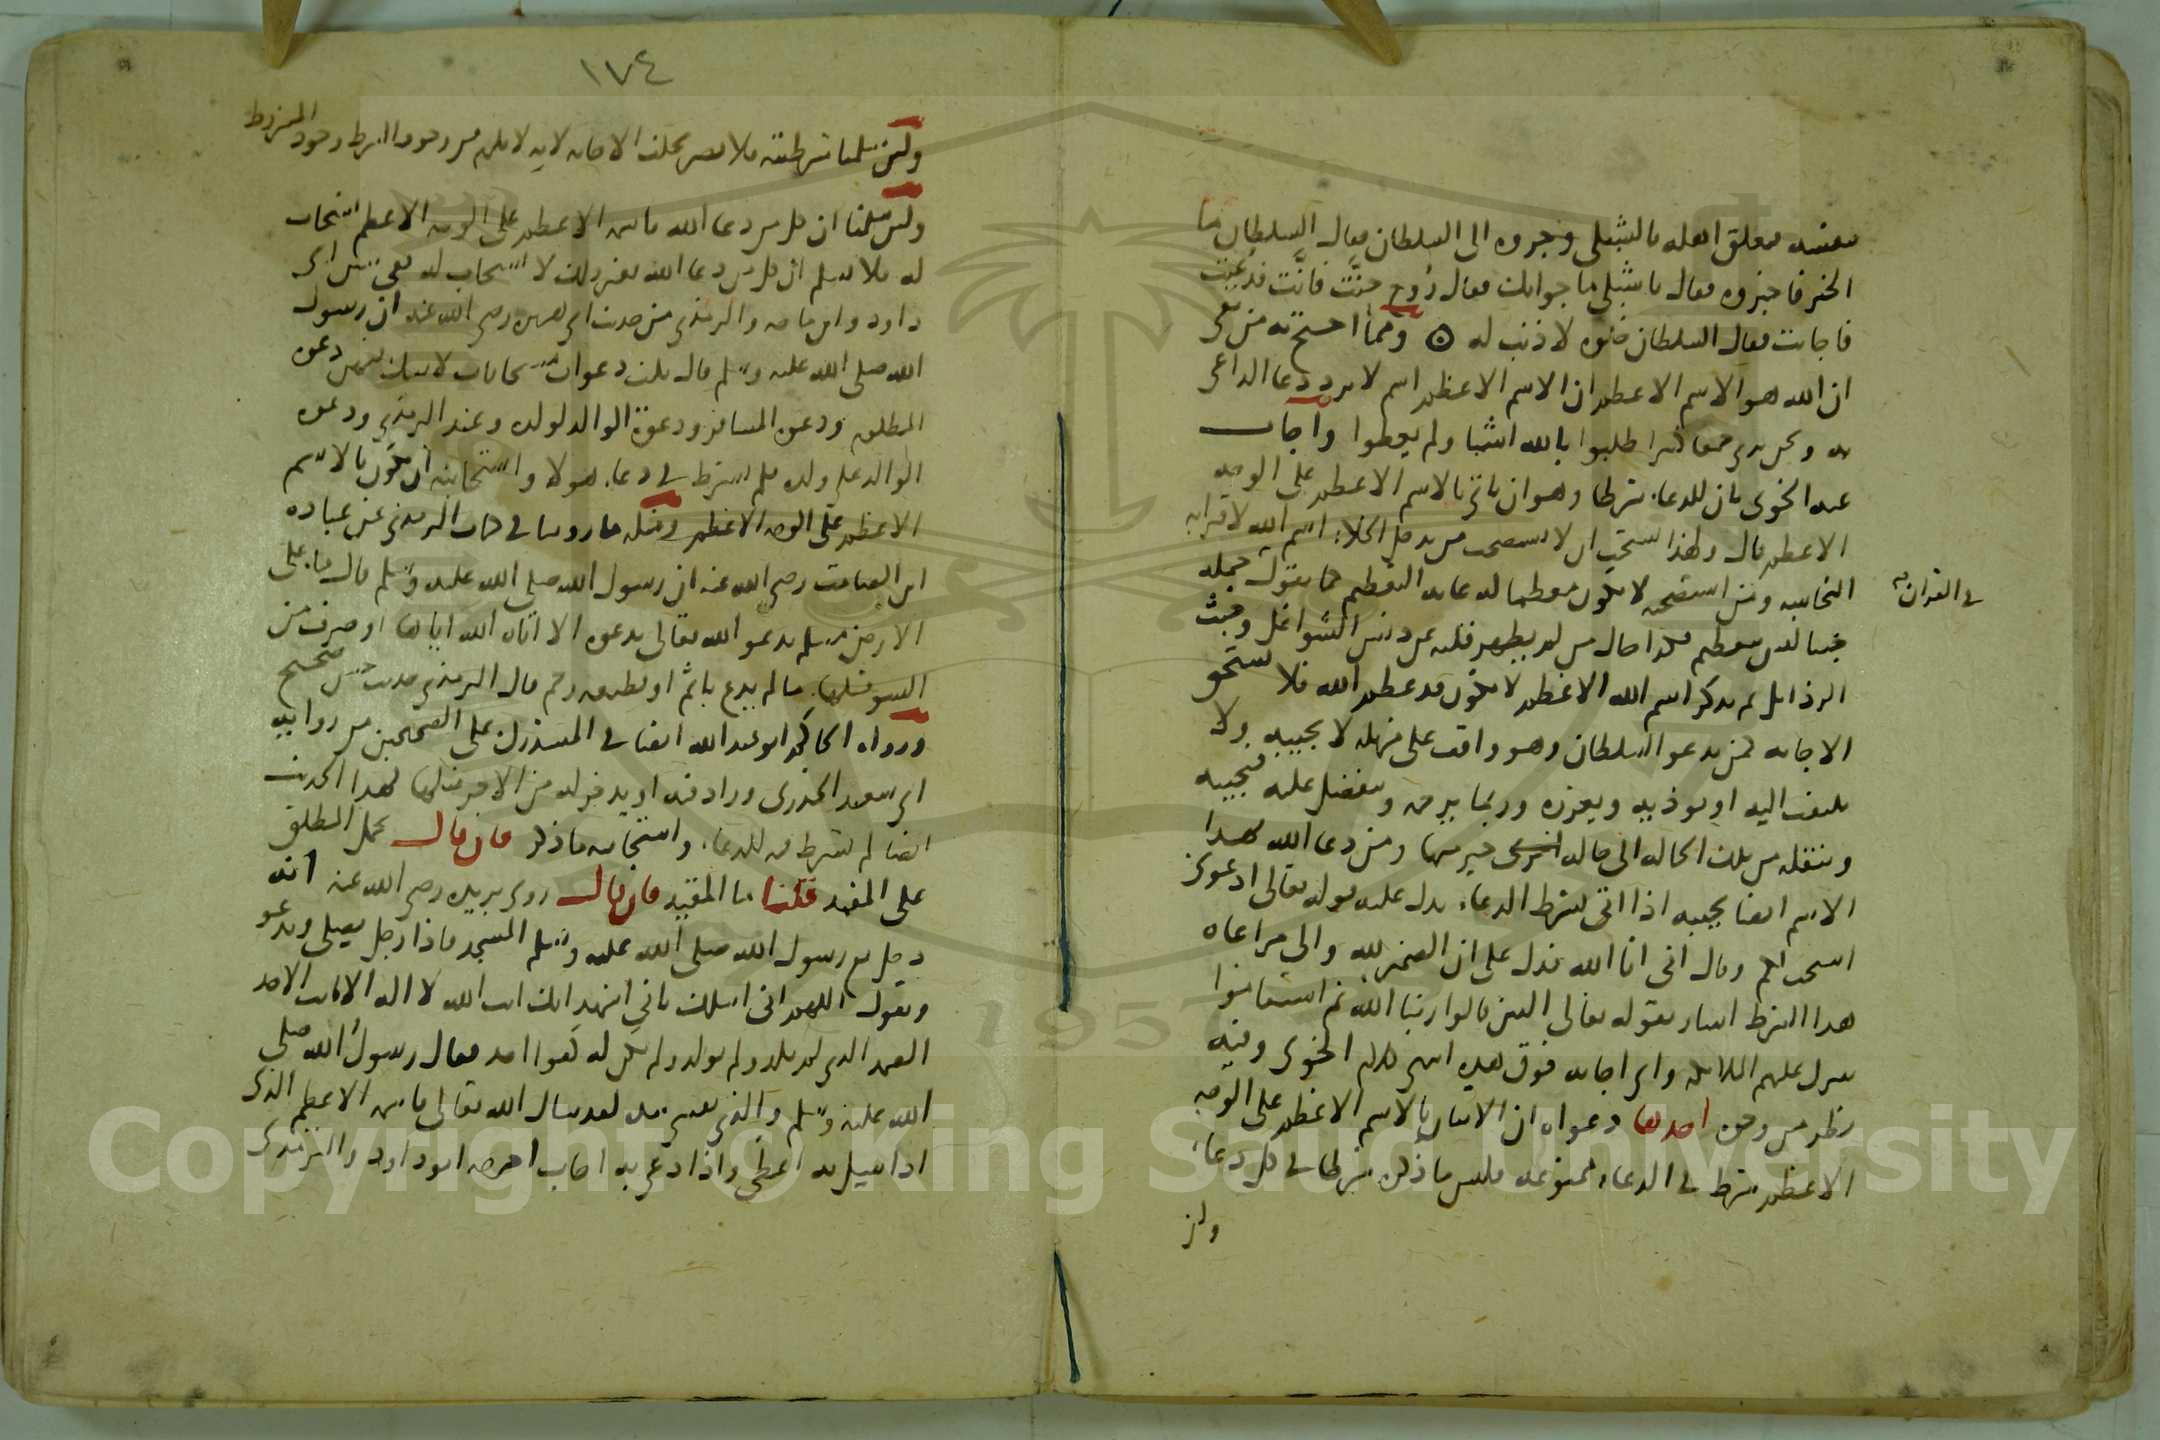 فتعلق اهله بالشبلي وجروه الى السلطان فقال السلطان ما
الخبر فاخبروه فقال يا شبلي ما جوابك فقال روح حنّت فانّت فدعيت
فاجابت فقال السلطان خلوه لا ذنب له ۞ ومما احتج به من نفى
ان الله هو الاسم الاعظم ان الاسم الاعظم اسم لا يرد دعا الداعي
به ونحن نرى جمعا كثيرا طلبوا بالله اشيا ولم يعطوا واجاب
عنه الخوى بان للدعاء شرطا وهو ان ياتي بالاسم الاعظم على الوجه
الاعظم قال ولهذا يستحب ان لا يستصحب من يدخل الخلاء اسم الله لاقترابه
النجاسه ومن استصحبه لا يكون معظما له غايه التعظيم كما يقول
في القران
ليس بمعظم فكذا حال من لم يطهر قلبه عن دنس الشواغل وخبث
الرذايل ثم يذكر اسم الله الاعظم لا يكون قد عظم الله فلا يستحق
الاجابه كمن يدعو السلطان وهو واقف على مزبله لا يجيبه ولا
يلتفت اليه او يوذيه ويعزره وربما يرحمه ويتفضل عليه فيجيبه
وينقله من تلك الحاله الى حاله اخرى خير منها ومن دعا الله بهذا
الاسم ايضا يجيبه اذا اتى بشرط الدعاء يدل عليه قوله تعالى ادعوني
استجب لكم وقال اني انا الله فدل على ان الضمير لله والى مراعاه
هذا الشرط اشار بقوله تعالى الذين قالوا ربنا الله ثم استقاموا
تتنزل عليهم الملائكه واي اجابه فوق هذه انتهى كلام الخوى وفيه
نظر من وجوه احدها دعواه ان الاتيان بالاسم الاعظم على الوجه
الاعظم شرط في الدعاء ممنوعه فليس ما ذكره شرطا في كل دعاء
ولئن
١٧٤
ولئن سلمنا شرطيته فلا يضر تخلف الاجابه لانه لا يلزم من وجود الشرط وجود المشروط
ولئن سلمنا ان كل من دعا الله باسمه الاعظم على الوجه الاعظم استجاب
له فلا نسلم ان كل من دعا الله بغير ذلك لا يستجاب له ففي سنن ابي
داود وابن ماجه والترمذي من حديث ابي هريره رضي الله عنه ان رسول
الله صلى الله عليه وسلم قال ثلث دعوات مستجابات لا شك فيهن دعوه
المظلوم ودعوه المسافر ودعوة الوالد لولده وعند الترمذي ودعوه
الوالد على ولده فلم يشترط في دعاء هولا واستجابته ان يكون بالاسم
الاعظم على الوجه الاعظم ومثله ما روينا في كتاب الترمذي عن عباده
ابن الصامت رضي الله عنه ان رسول الله صلى الله عليه وسلم قال ما على
الارض مسلم يدعو الله تعالى بدعوه الا اتاه الله اياها او صرف من
السو مثلها ما لم يدع باثم او قطيعه رحم قال الترمذي حديث حسن صحيح
ورواه الحاكم ابو عبد الله ايضا في المستدرك على الصحيحين من روايه
ابي سعيد الخدري وزاد فيه او يدخر له من الاجر مثلها فهذا الحديث
ايضا لم يشترط فيه للدعاء واستجابته ما ذكر فان قال يحمل المطلق
على المقيد قلنا ما المقيد فان قال روى بريده رضي الله عنه انه
دخل مع رسول الله صلى الله عليه وسلم المسجد فاذا رجل يصلي ويدعو
ويقول اللهم اني اسلك باني اشهد انك انت الله لا اله الا انت الاحد
الصمد الذي لم يلد ولم يولد ولم يكن له كفوا احد فقال رسول الله صلى
الله عليه وسلم والذي نفسي بيده لقد سال الله تعالى باسمه الاعظم الذي
اذا سيل به اعطى واذا دعي به اجاب اخرجه ابو داود والترمذي
Copyright © King Saud University
1957